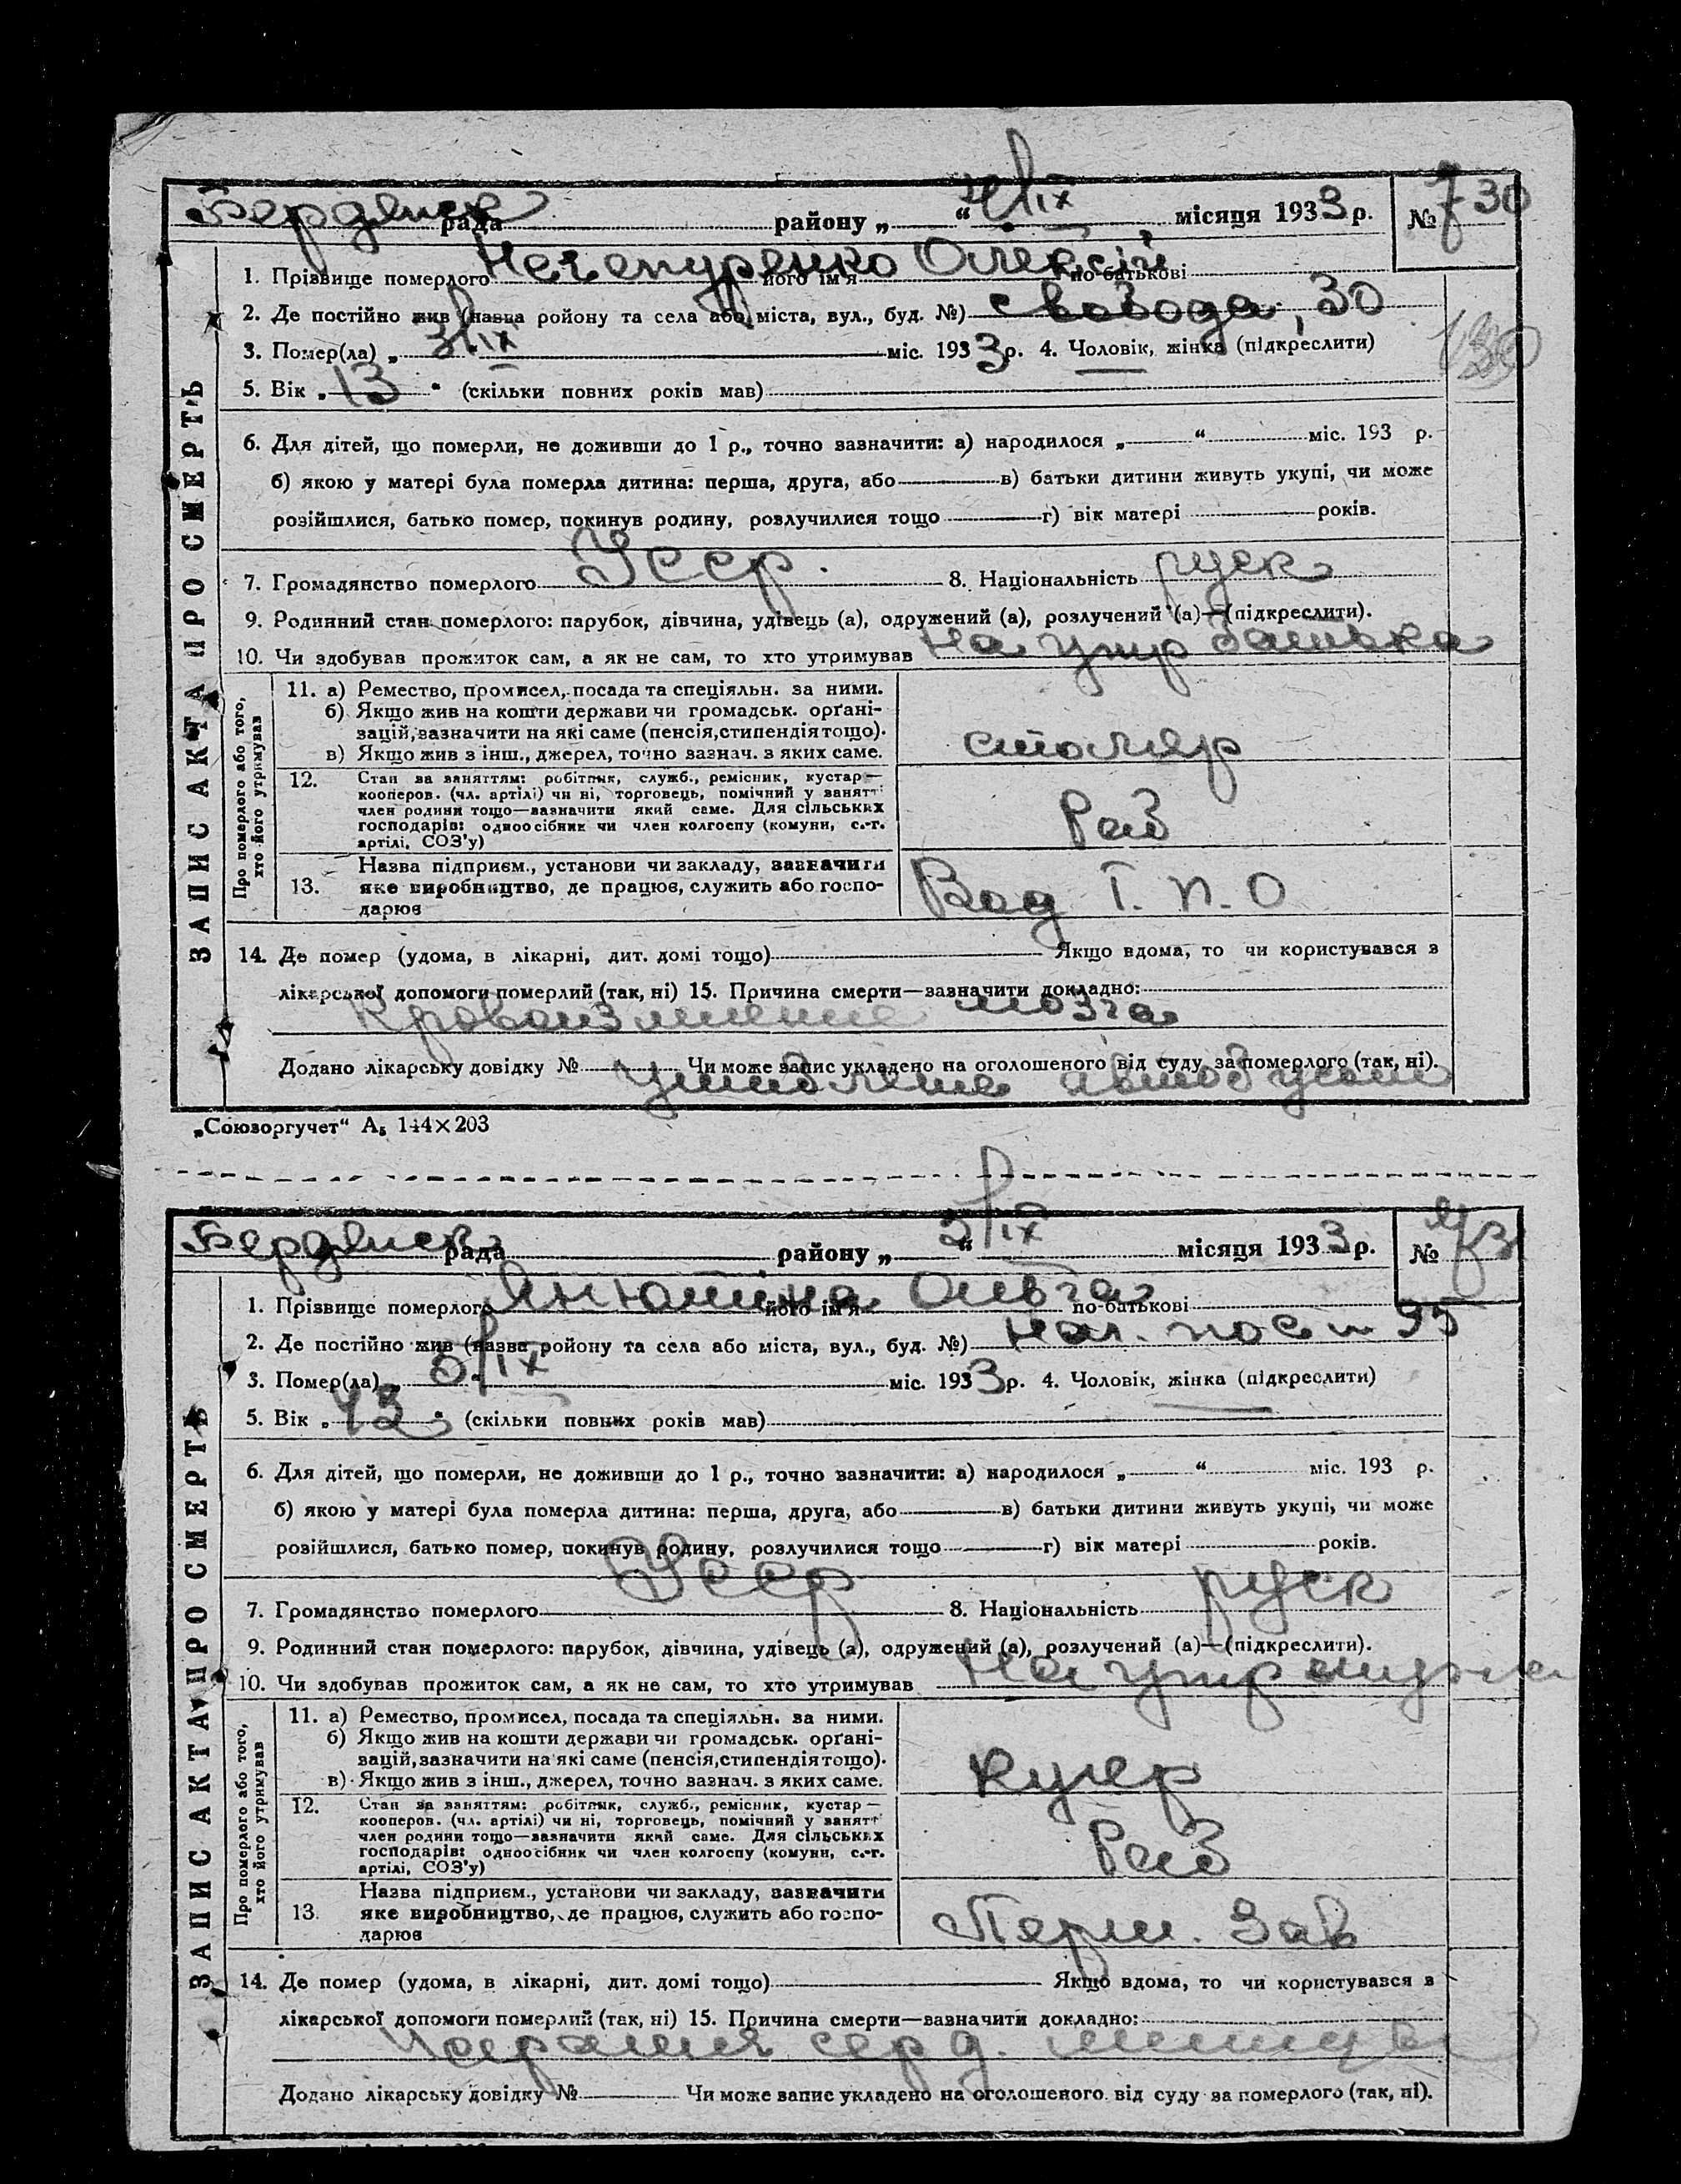 Бердянск рада району „ “ 4/IX місяця 1933 р. № 730
1. Прізвище померлого Нечепуренко його ім'я Олексій по-батькові
2. Де постійно жив (назва ройону та села або міста, вул., буд. №) Свобода, 30
3. Помер(ла) „ 3/IX міс. 1933 р. 4. Чоловік, жінка (підкреслити)
130
5. Вік „ 13 “ (скільки повних років мав)
6. Для дітей, що померли, не доживши до 1 р., точно зазначити: а) народилося „ “ міс. 193 р.
б) якою у матері була померла дитина: перша, друга, або в) батьки дитини живуть укупі, чи може
розійшлися, батько помер, покинув родину, розлучилися тощо г) вік матері років.
7. Громадянство померлого Усср. 8. Національність руск
9. Родинний стан померлого: парубок, дівчина, удівець (а), одружений (а), розлучений (а)—(підкреслити).
10. Чи здобував прожиток сам, а як не сам, то хто утримував на утр батька
ЗАПИС АКТА ПРО СМЕРТЬ
Про померлого або того,
хто його утримував
11. а) Ремество, промисел, посада та спеціяльн. за ними.
б) Якщо жив на кошти держави чи громадськ. орґані-
зацій, зазначити на які саме (пенсія, стипендія тощо).
в) Якщо жив з інш., джерел, точно зазнач. з яких саме.
столяр
12. Стан за заняттям: робітник, служб., ремісник, кустар—
кооперов. (чл. артілі) чи ні, торговець, помічний у занятт
член родини тощо—зазначити який саме. Для сільських
господарів: одноосібник чи член колгоспу (комуни, с.-г.
артілі, СОЗ'у)
Раб
Назва підприєм., установи чи закладу, зазначити
13. яке виробництво, де працює, служить або госпо-
дарює
Вод Т. П. О
14. Де помер (удома, в лікарні, дит. домі тощо) Якщо вдома, то чи користувався з
лікарської допомоги померлий (так, ні) 15. Причина смерти—зазначити докладно:
мозга
Додано лікарську довідку № Чи може запис укладено на оголошеного від суду за померлого (так, ні).
автобусом
„Союзоргучет“ А5 144×203
Бердянск рада району „ “ 5/IX місяця 1933 р. № 731
1. Прізвище померлого Анютіна його ім'я Ольга по-батькові
2. Де постійно жив (назва ройону та села або міста, вул., буд. №) нач. пос 95
3. Помер(ла) „ 5/IX міс. 1933 р. 4. Чоловік, жінка (підкреслити)
5. Вік „ 43 “ (скільки повних років мав)
6. Для дітей, що померли, не доживши до 1 р., точно зазначити: а) народилося „ “ міс. 193 р.
б) якою у матері була померла дитина: перша, друга, або в) батьки дитини живуть укупі, чи може
розійшлися, батько помер, покинув родину, розлучилися тощо г) вік матері років.
7. Громадянство померлого Усср 8. Національність руск
9. Родинний стан померлого: парубок, дівчина, удівець (а), одружений (а), розлучений (а)—(підкреслити).
10. Чи здобував прожиток сам, а як не сам, то хто утримував на утр мужа
ЗАПИС АКТА ПРО СМЕРТЬ
Про померлого або того,
хто його утримував
11. а) Ремество, промисел, посада та спеціяльн. за ними.
б) Якщо жив на кошти держави чи громадськ. орґані-
зацій, зазначити на які саме (пенсія, стипендія тощо).
в) Якщо жив з інш., джерел, точно зазнач. з яких саме.
кучер
12. Стан за заняттям: робітник, служб., ремісник, кустар—
кооперов. (чл. артілі) чи ні, торговець, помічний у занятт
член родини тощо—зазначити який саме. Для сільських
господарів: одноосібник чи член колгоспу (комуни, с.-г.
артілі, СОЗ'у)
Раб
Назва підприєм., установи чи закладу, зазначити
13. яке виробництво, де працює, служить або госпо-
дарює
Перш. Зав
14. Де помер (удома, в лікарні, дит. домі тощо) Якщо вдома, то чи користувався з
лікарської допомоги померлий (так, ні) 15. Причина смерти—зазначити докладно:
серд. мишцы
Додано лікарську довідку № Чи може запис укладено на оголошеного від суду за померлого (так, ні).